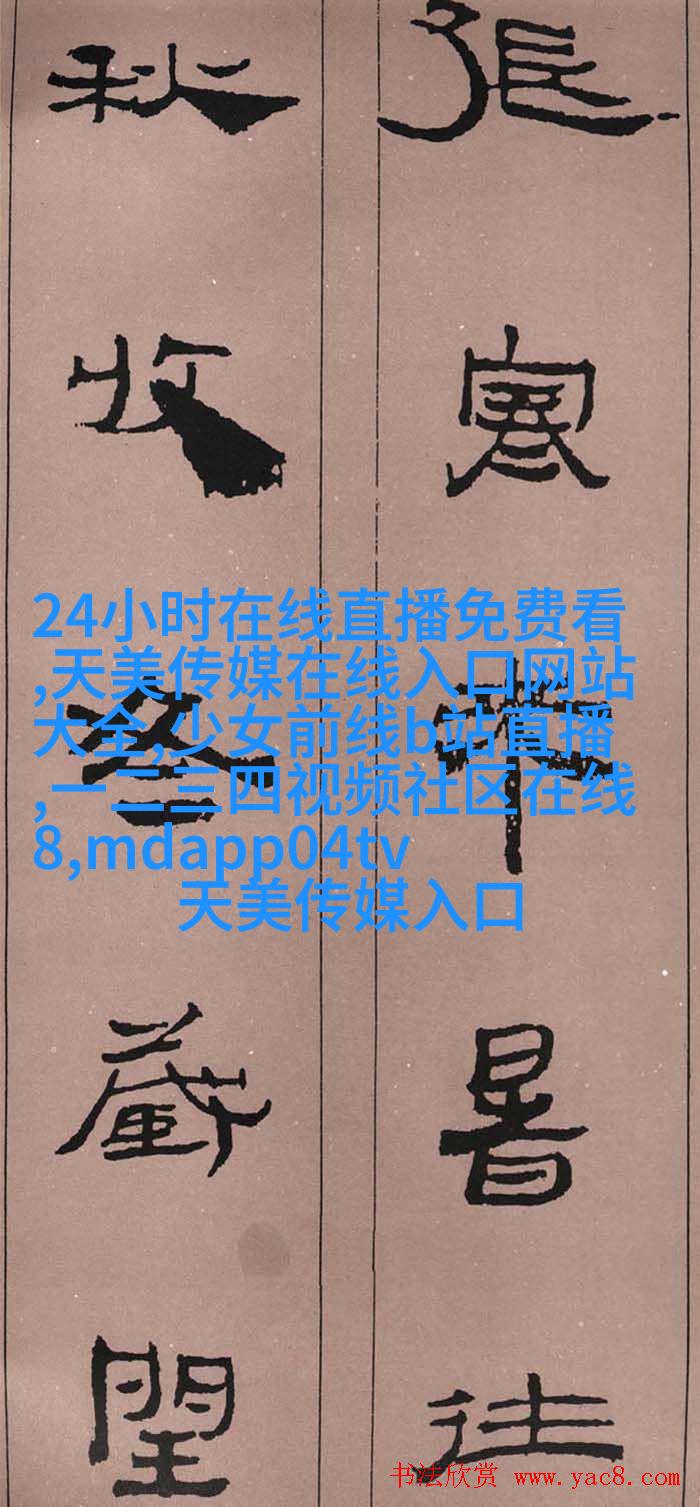 張寒來暑往
秋收冬藏閏
24小时在线直播免费看
,天美传媒在线入口网站
大全,少女前线b站直播
,一二三四视频社区在线
8,mdapp04tv
天美传媒入口
书法欣赏 www.yac8.com